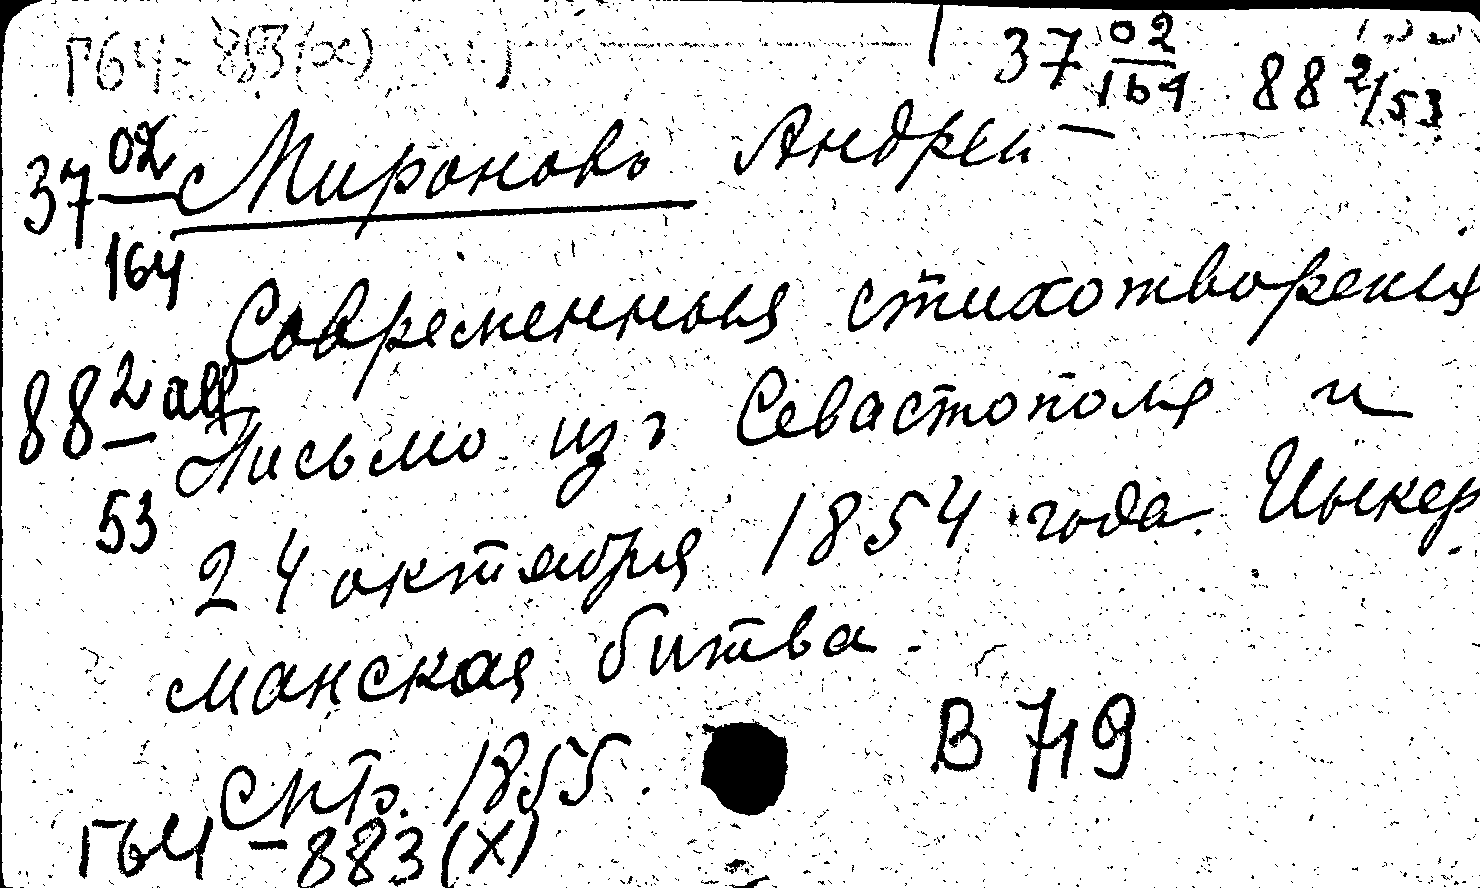 Г64-883(х)
37 02/164 88 2/53
37 02/164
Мироновъ Андрей
Современныя стихотворения
88 2/53
Письмо изъ Севастополя и
24 октября 1854 года. Инкер
манская битва.
СПТБ. 1855.
В 719
Г64-883(х)